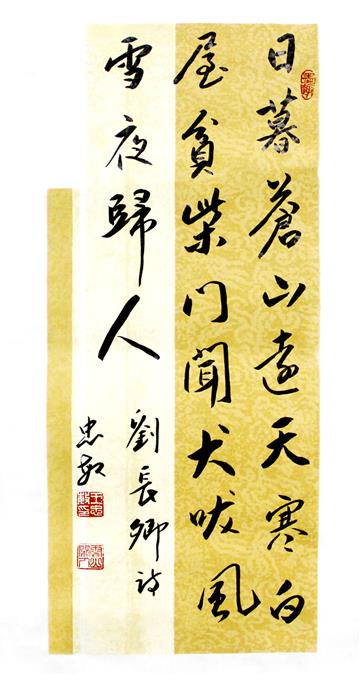 日暮蒼山遠天寒白
屋貧柴門聞犬吠風
雪夜歸人
劉長卿詩
忠敬